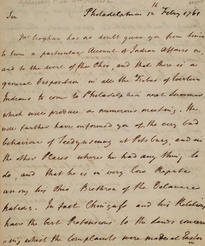 Sir Philadelphia 12th Febry 1761
Mr Croghan has no doubt given you from time
to time a particular Account of Indian Affairs on
and to the west of the Ohio and that there is a
general Disposition in all the Tribes of Western
Indians to come to Philadelphia next Summer
which will produce a numerous meeting. He
will further have informed you of the very bad
behaviour of Teedyuscung at Pitsburg, and in
the other Places where he had any thing to
do, and that he is in very low Repute
among his Brethren of the Delaware
In fact and his Relations
have the best Pretensions to the Lands concern
ing which the Complaints were made at